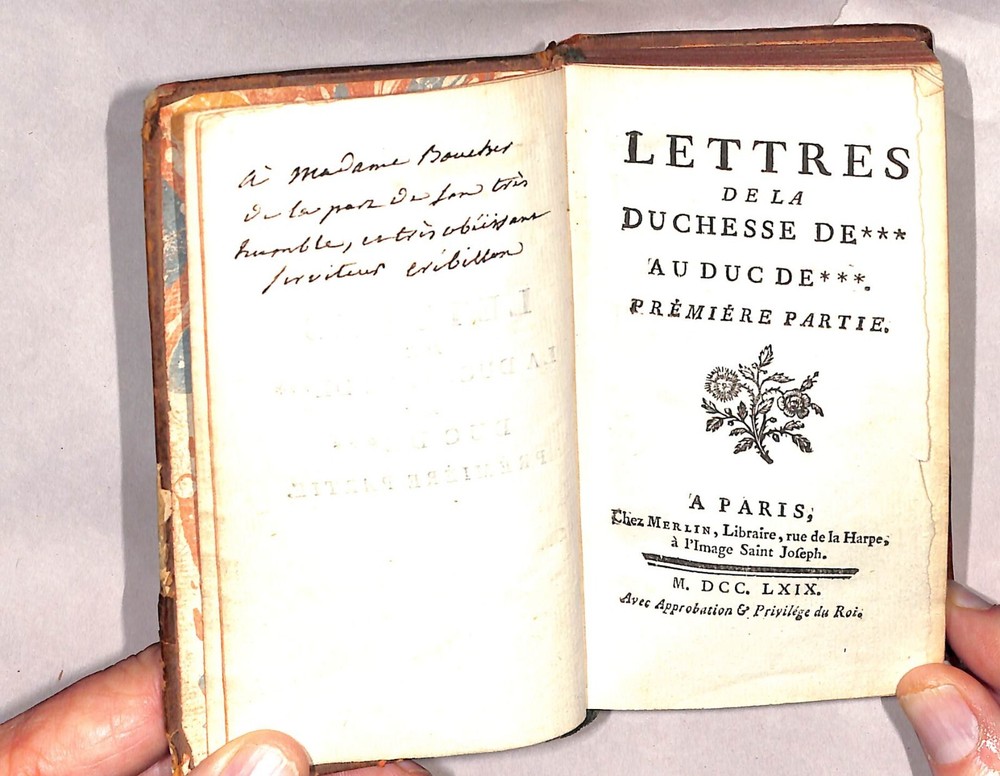 à Madame Boucher
de la part de son très
humble, et très obéissant
serviteur Crébillon
LETTRES
DE LA
DUCHESSE DE***
AU DUC DE***.
PRÉMIÉRE PARTIE.
A PARIS,
Chez MERLIN, Libraire, rue de la Harpe,
à l'Image Saint Joſeph.
M. DCC. LXIX.
Avec Approbation & Privilége du Roi.